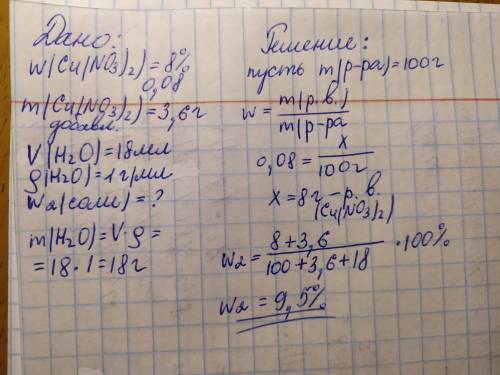 Дано:
w(Cu(NO3)2) = 8%
0,08
m(Cu(NO3)2) = 3,6г
добавл.
V(H2O) = 18мл
ρ(H2O) = 1 г/мл
w2(соли) = ?
m(H2O) = V·ρ =
= 18·1 = 18г
Решение:
пусть m(р-ра) = 100г
w = m(р.в.) / m(р-ра
0,08 = x / 100г
x = 8г – р.в.
(Cu(NO3)2)
w2 = 8+3,6 / 100+3,6+18 ·100%
w2 = 9,5%